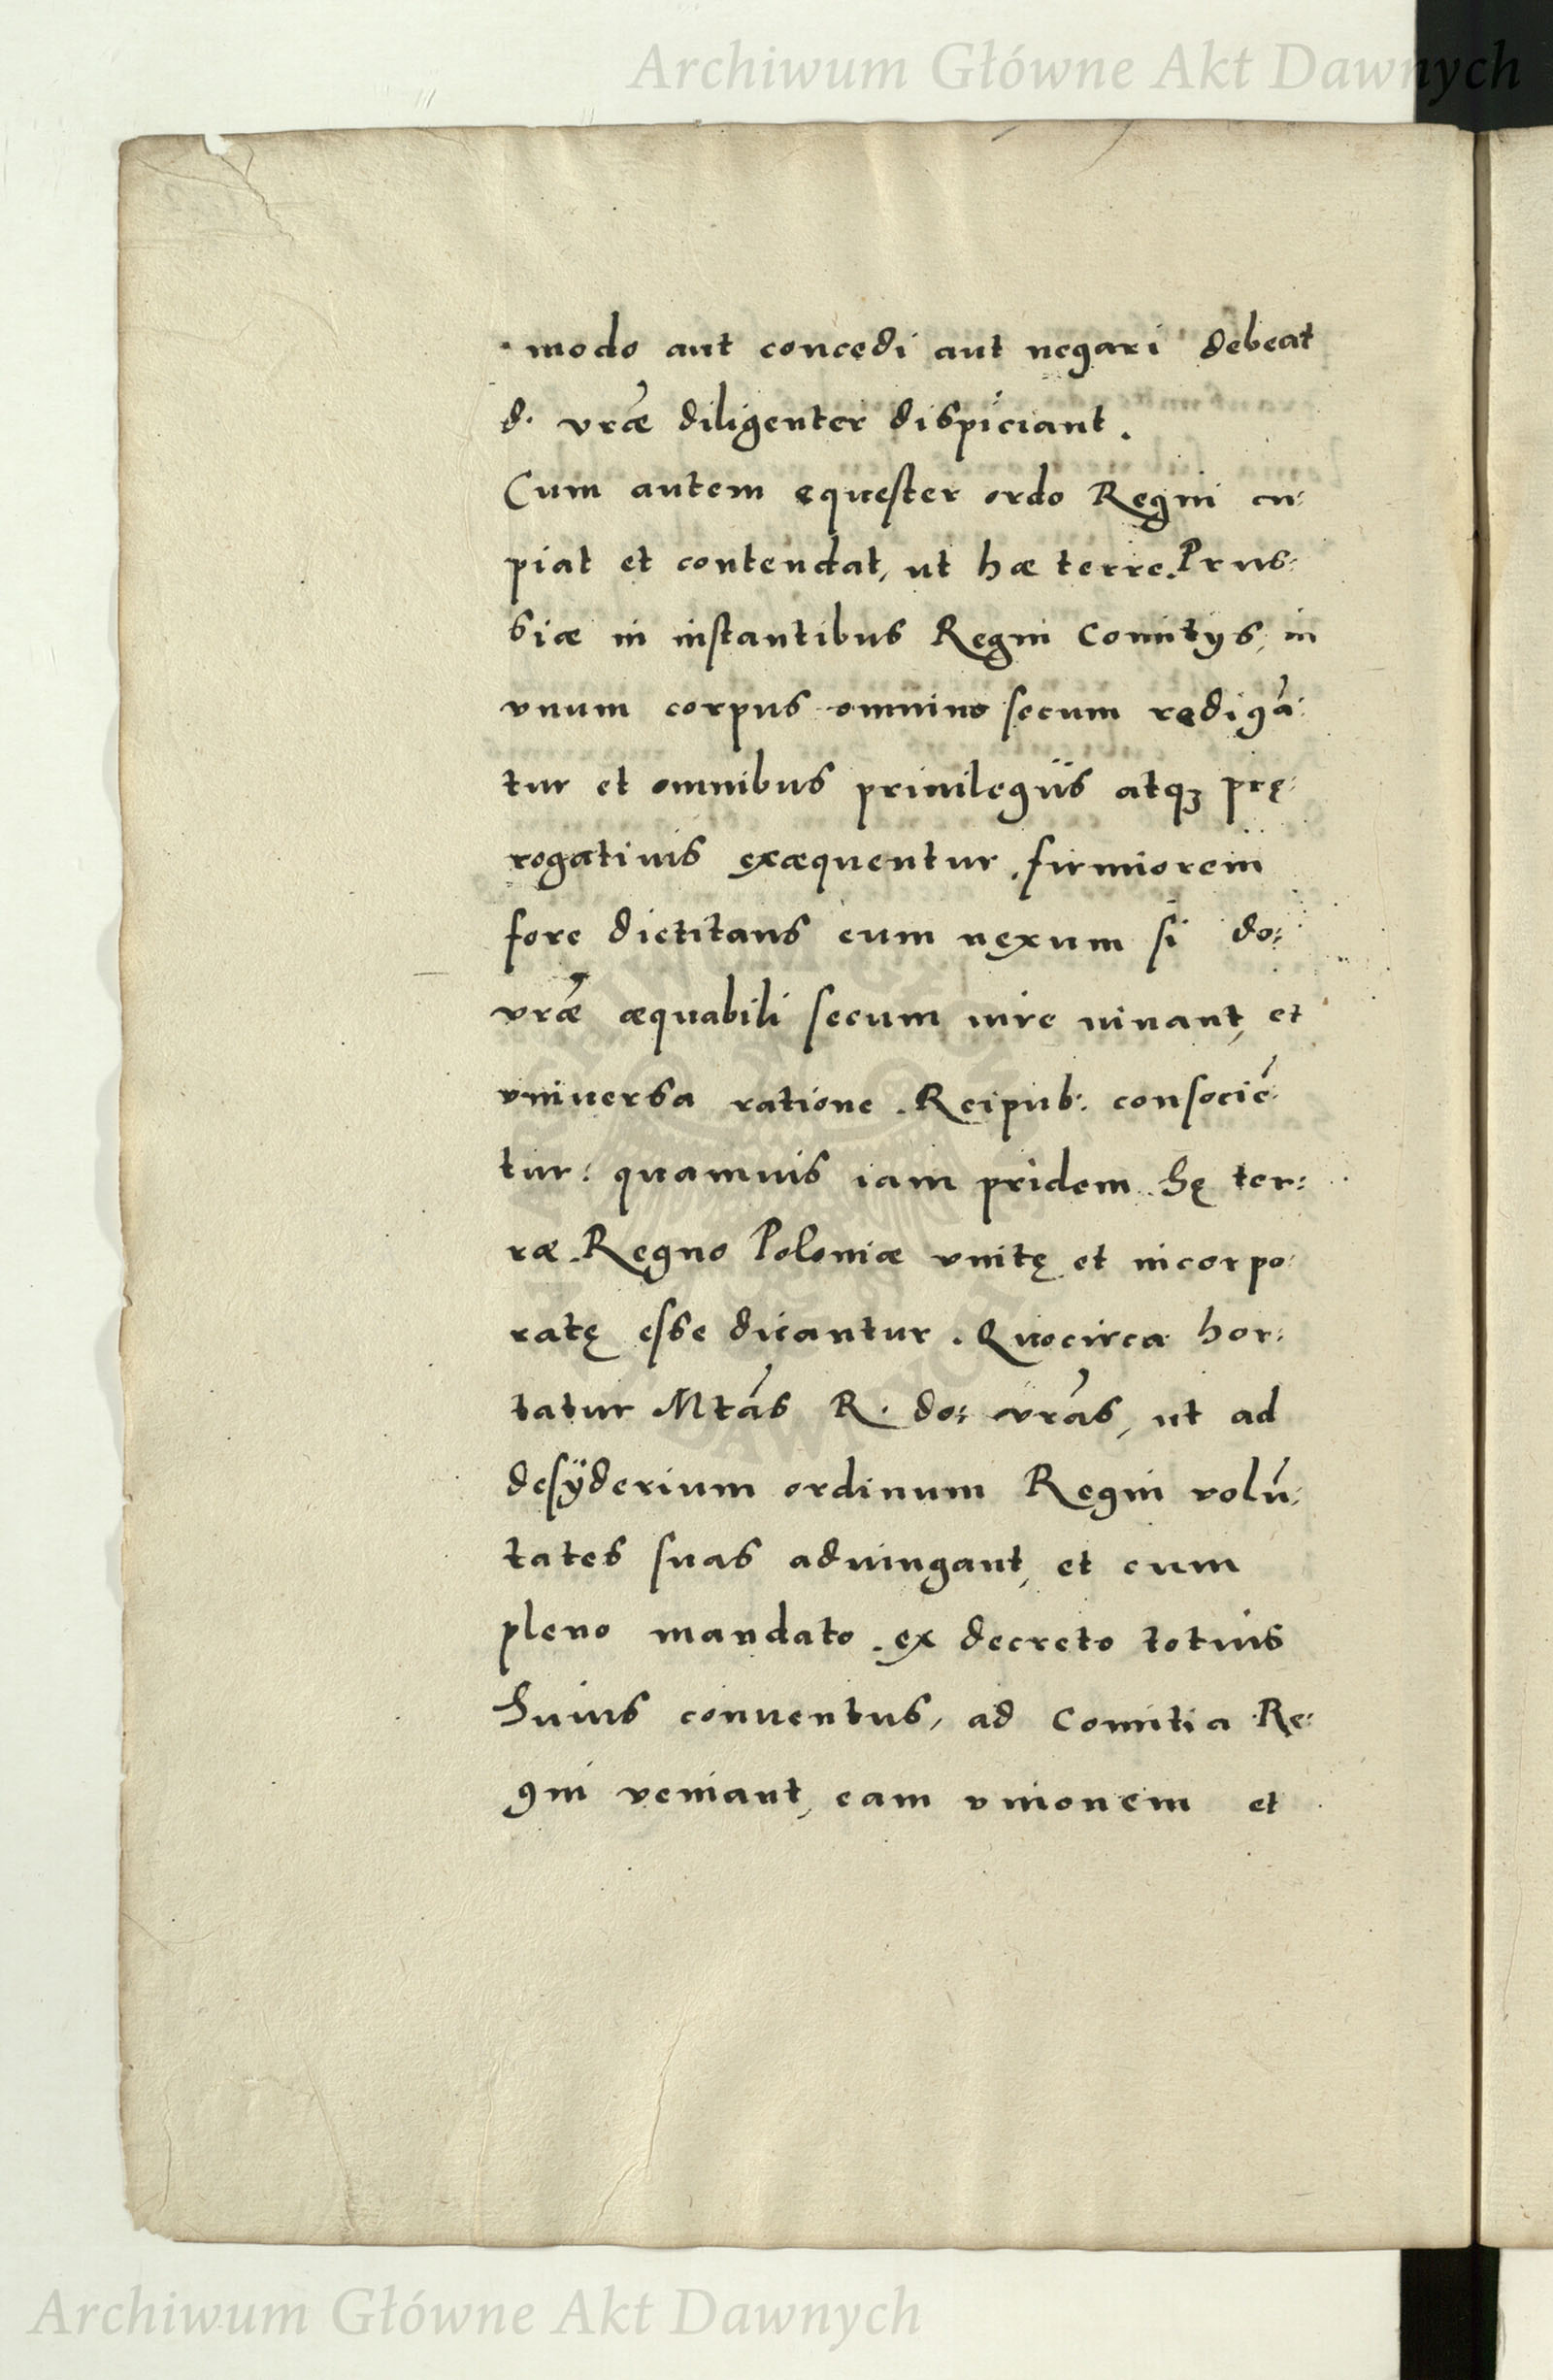 Archiwum Główne Akt Dawnych
modo aut concedi aut negari debeat
d. vrãe diligenter dispiciant.
Cum autem equester ordo Regni cu:
piat et contendat, ut hæ terre Prus:
siæ in instantibus Regni Comitÿs, in
vnum corpus omnino secum redigã:
tur et omnibus priuilegiis atq₃ prę:
rogatiuis exæquentur, firmiorem
fore dictitans eum nexum si do:
vrãe æquabili secum iure uiuant, et
vniuersa ratione Reipub: consociẽ:
tur: quamuis iam pridem hę ter:
ræ Regno Poloniæ vnitę et incorpo:
ratę esse dicantur. Quocirca hor:
tatur Mtãs R. do: vrãs, ut ad
desÿderium ordinum Regni volũ:
tates suas adiungant, et cum
pleno mandato ex decreto totius
huius conuentus, ad Comitia Re:
gni veniant, eam vnionem et
Archiwum Główne Akt Dawnych